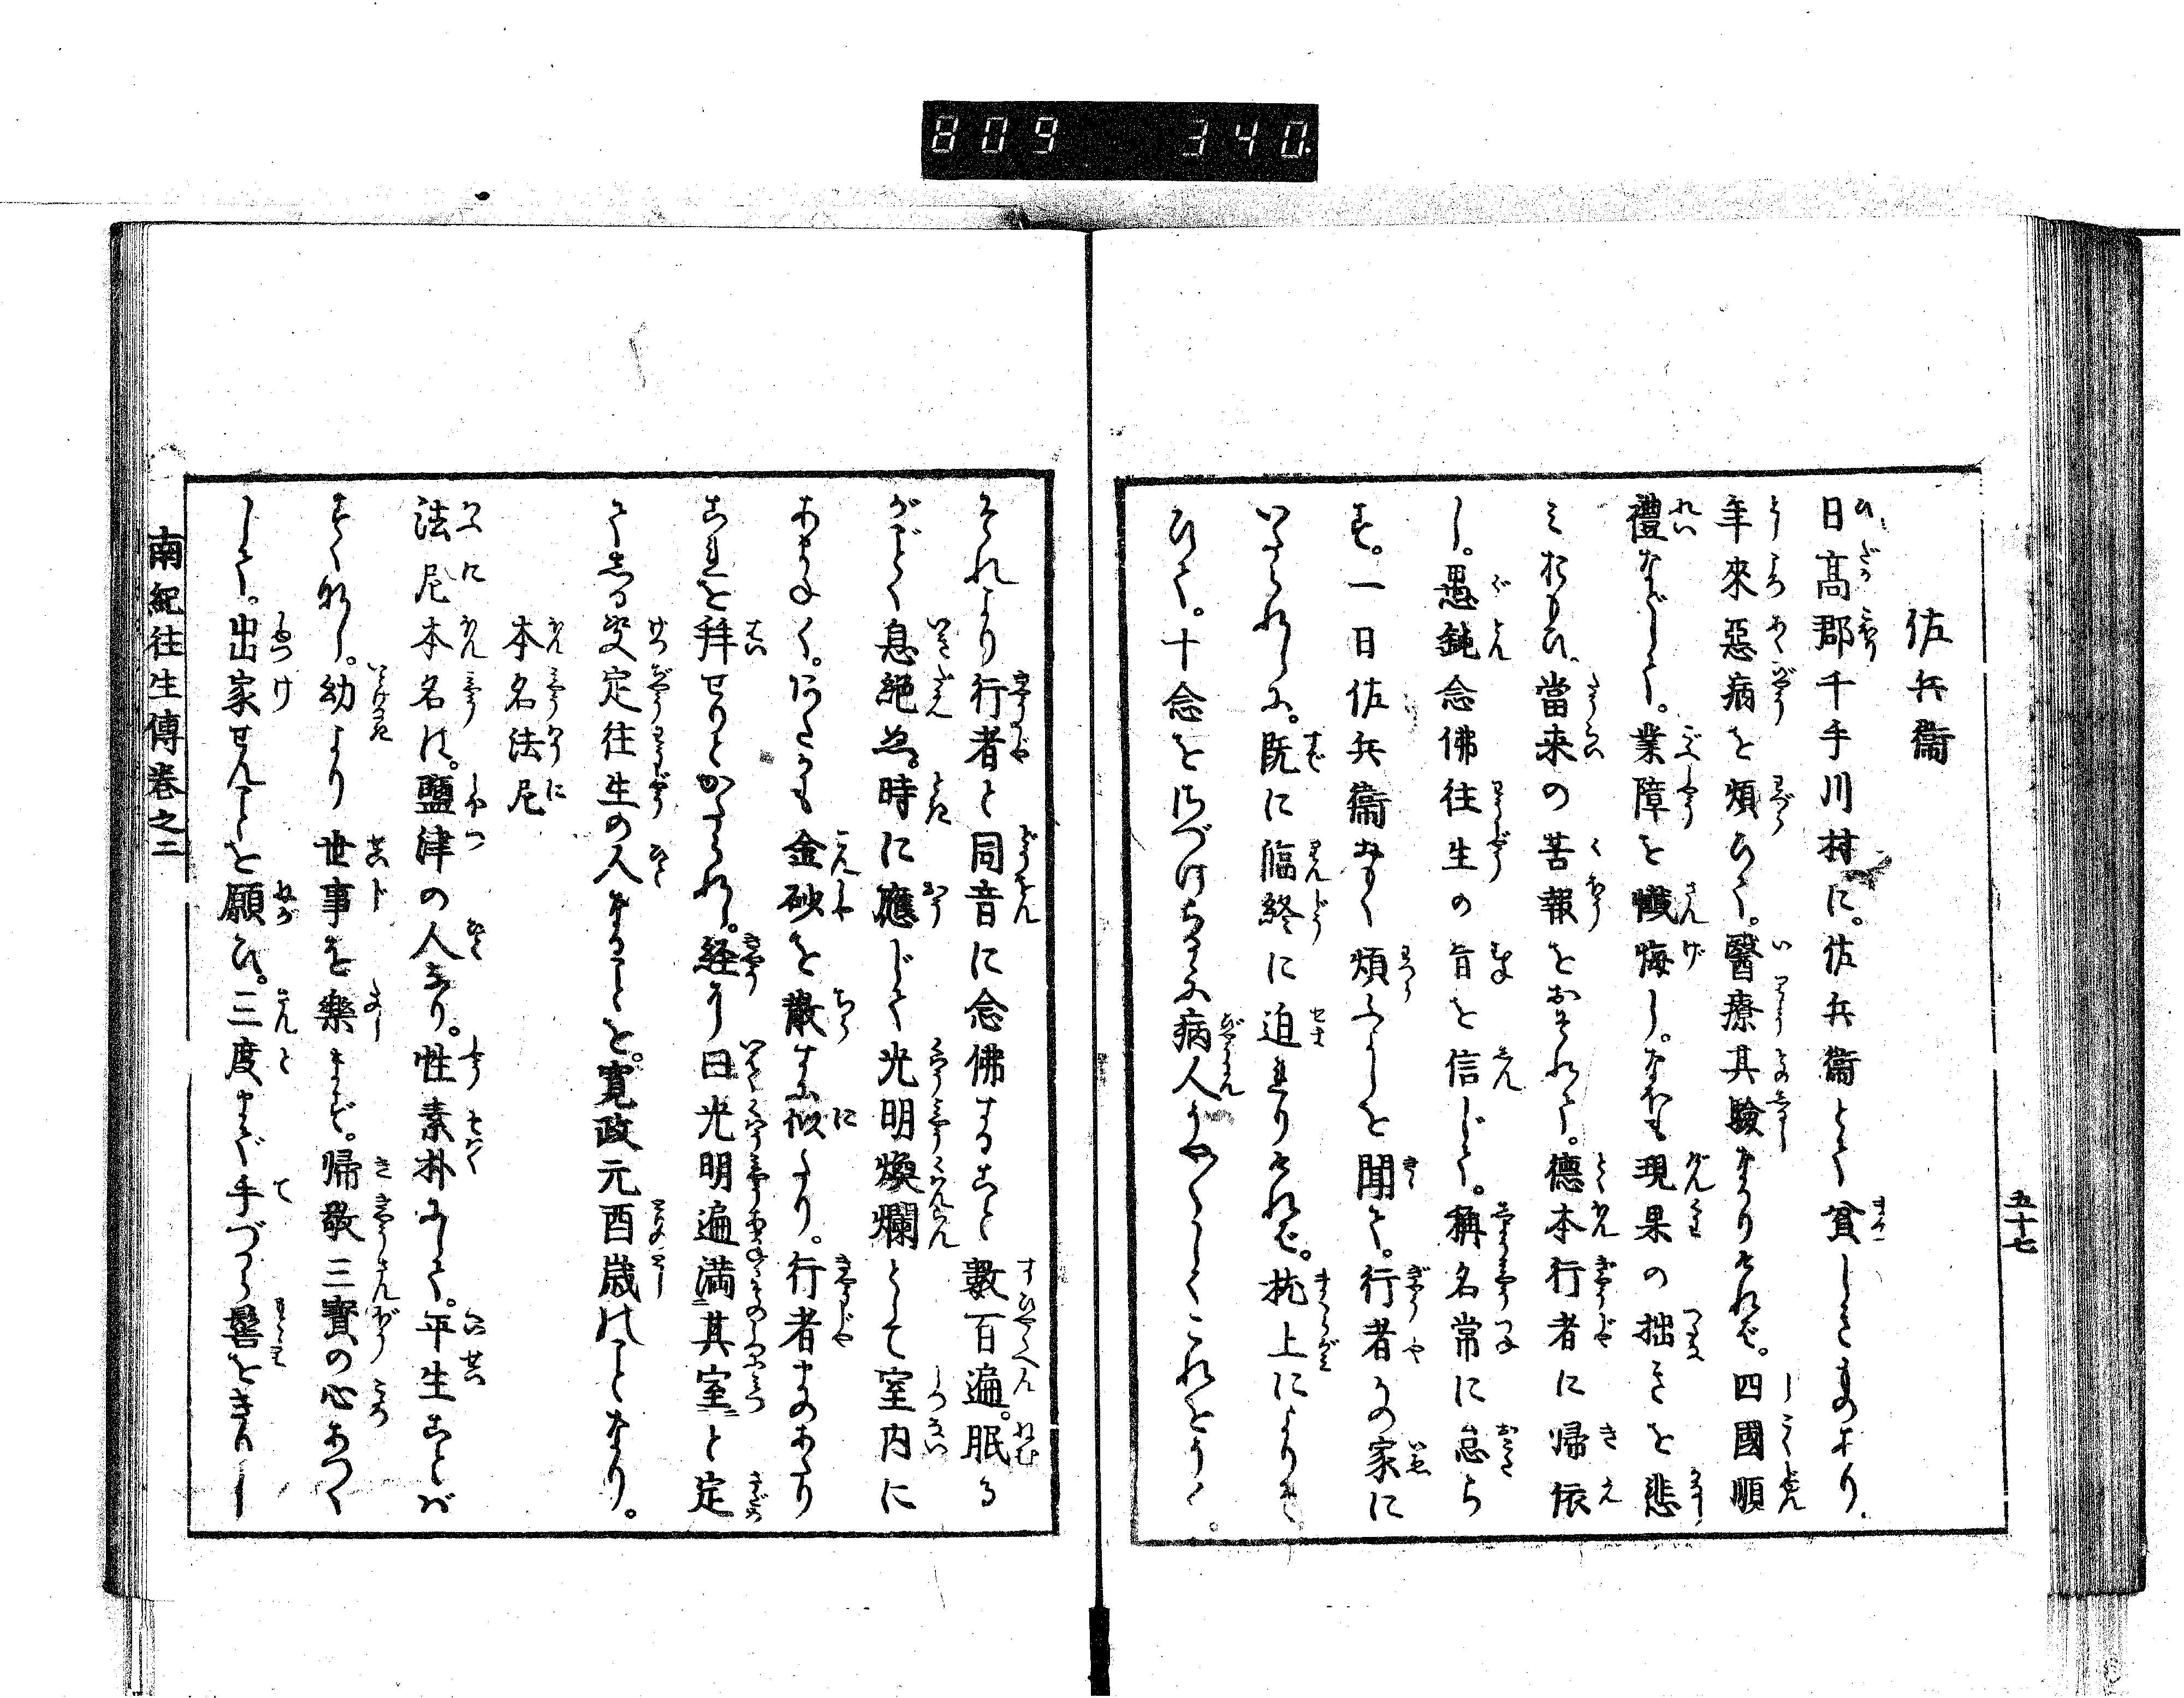 809 340
五十七
佐兵衞
日髙郡千手川村に。佐兵衞とて貧しきものあり。
年來惡病を煩ひて。醫療其驗なかりければ。四國順
禮などして。業障を懺悔し。なほも現果の拙きを悲
みおもひ。當来の苦報をおそれて。德本行者に帰依
し。愚鈍念佛往生の旨を信じて。稱名常に怠ら
ず。一日佐兵衞おもく煩ふよしを聞て。行者その家に
いたられしに。既に臨終に迫まりければ。枕上によりそ
ひて。十念をさづけらるるに病人うやうやしくこれをうく。
それより行者と同音に念佛すること數百遍。眠る
がごとく息絶ぬ。時に應じて光明煥爛として室内に
あまねく。あたかも金砂を散すに似たり。行者まのあたり
これを拜せりとかたられし。経に曰光明遍満其室と定
て知る决定往生の人なることを。寛政元酉歳のことなり。
本名法尼
法尼本名は。鹽津の人なり。性素朴にして。平生ことば
すくなし。幼より世事を樂まず。帰敬三寳の心あつく
して。出家せんことを願ひ。三度まで手づから髻をきりし
南紀往生傳巻之二